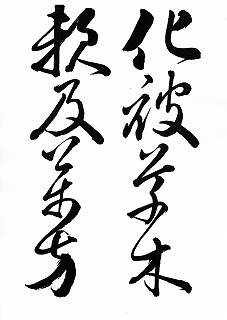 化被草木
賴及萬方